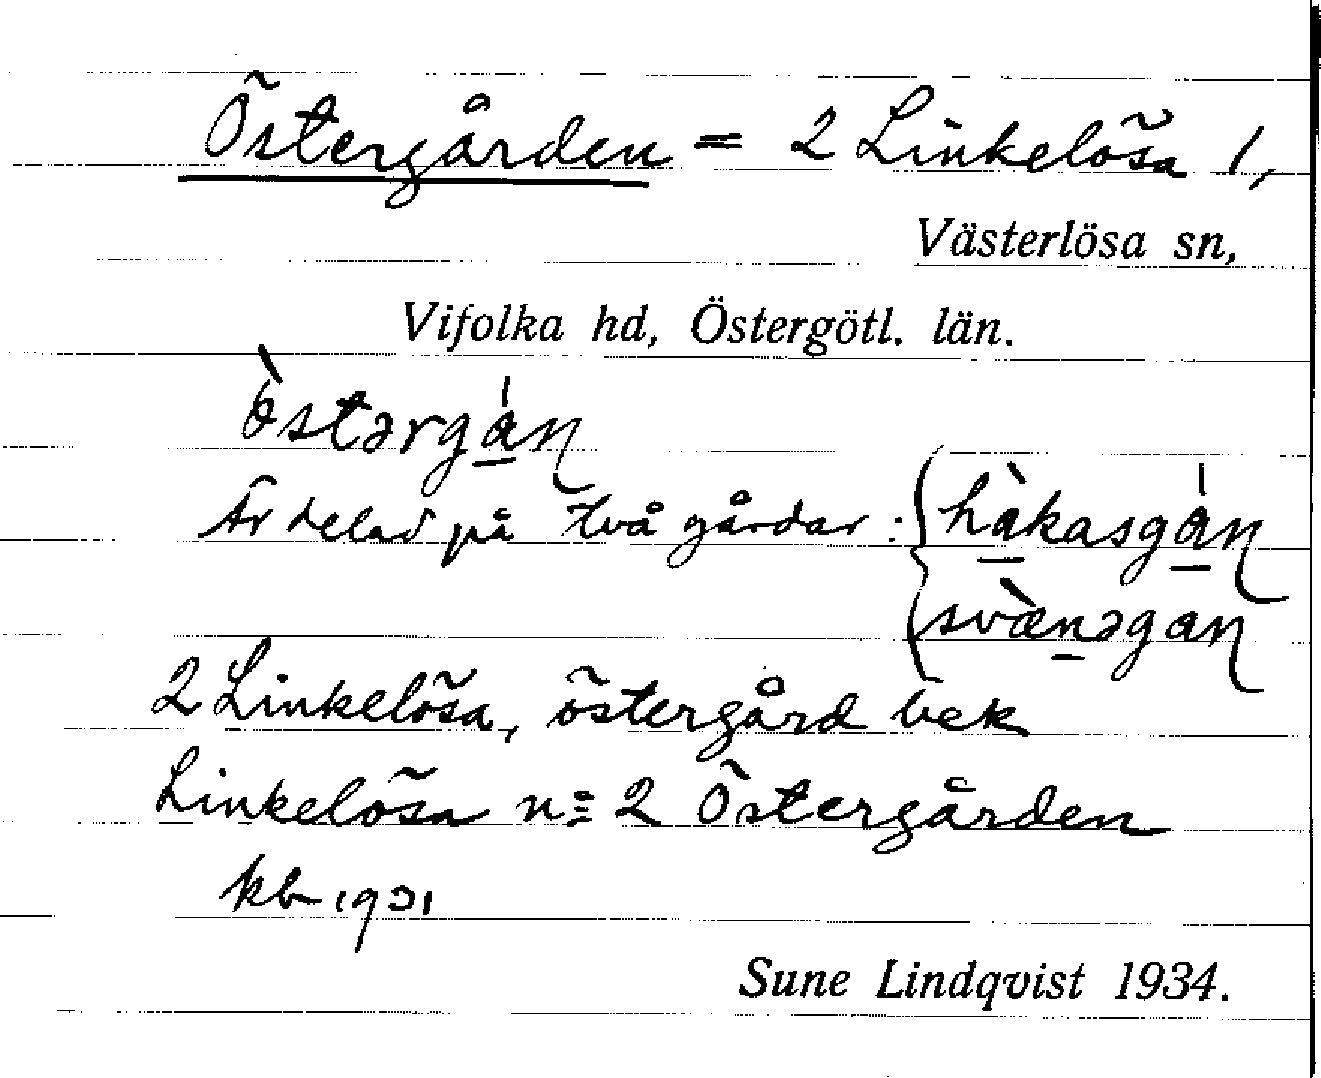 Östergården = 2 Linkelösa 1,
Västerlösa sn,
Vifolka hd, Östergötl. län.
ö̀stərgán
Är delad på två gårdar: { hàkasgán
svæ̀nəgan
2 Linkelösa, östergård bek
Linkelösa n:= 2 Östergården
kb 1931
Sune Lindqvist 1934.